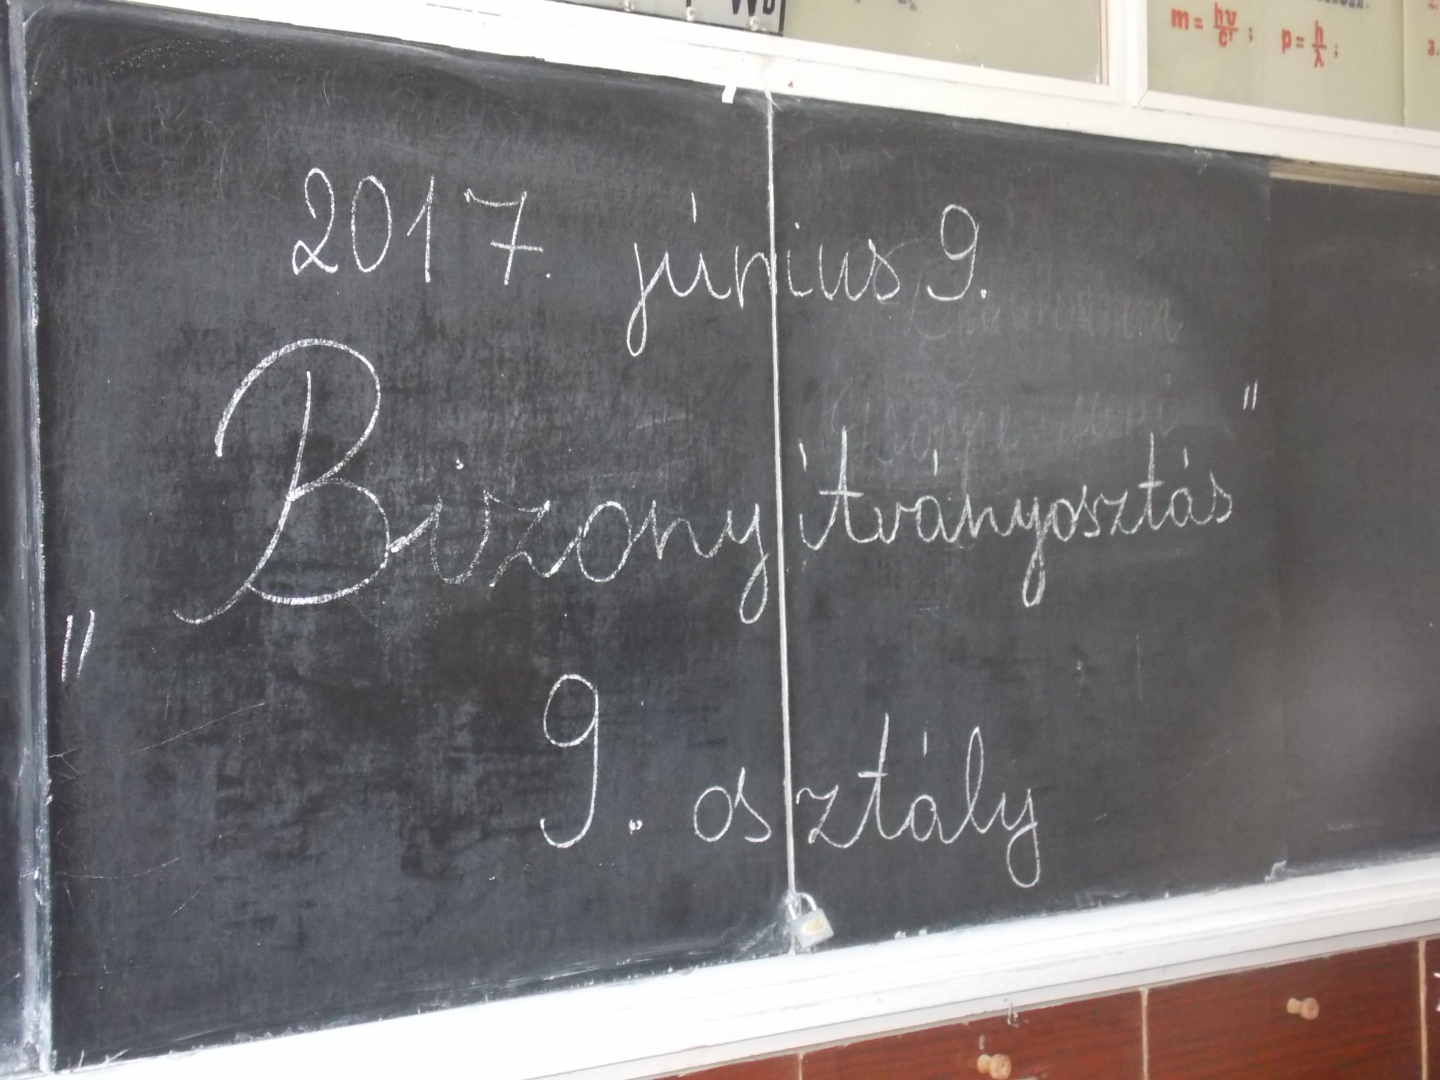 m = hν/c² ; p = h/λ ;
3.
2017. június 9.
Bizonyítványosztás
9. osztály